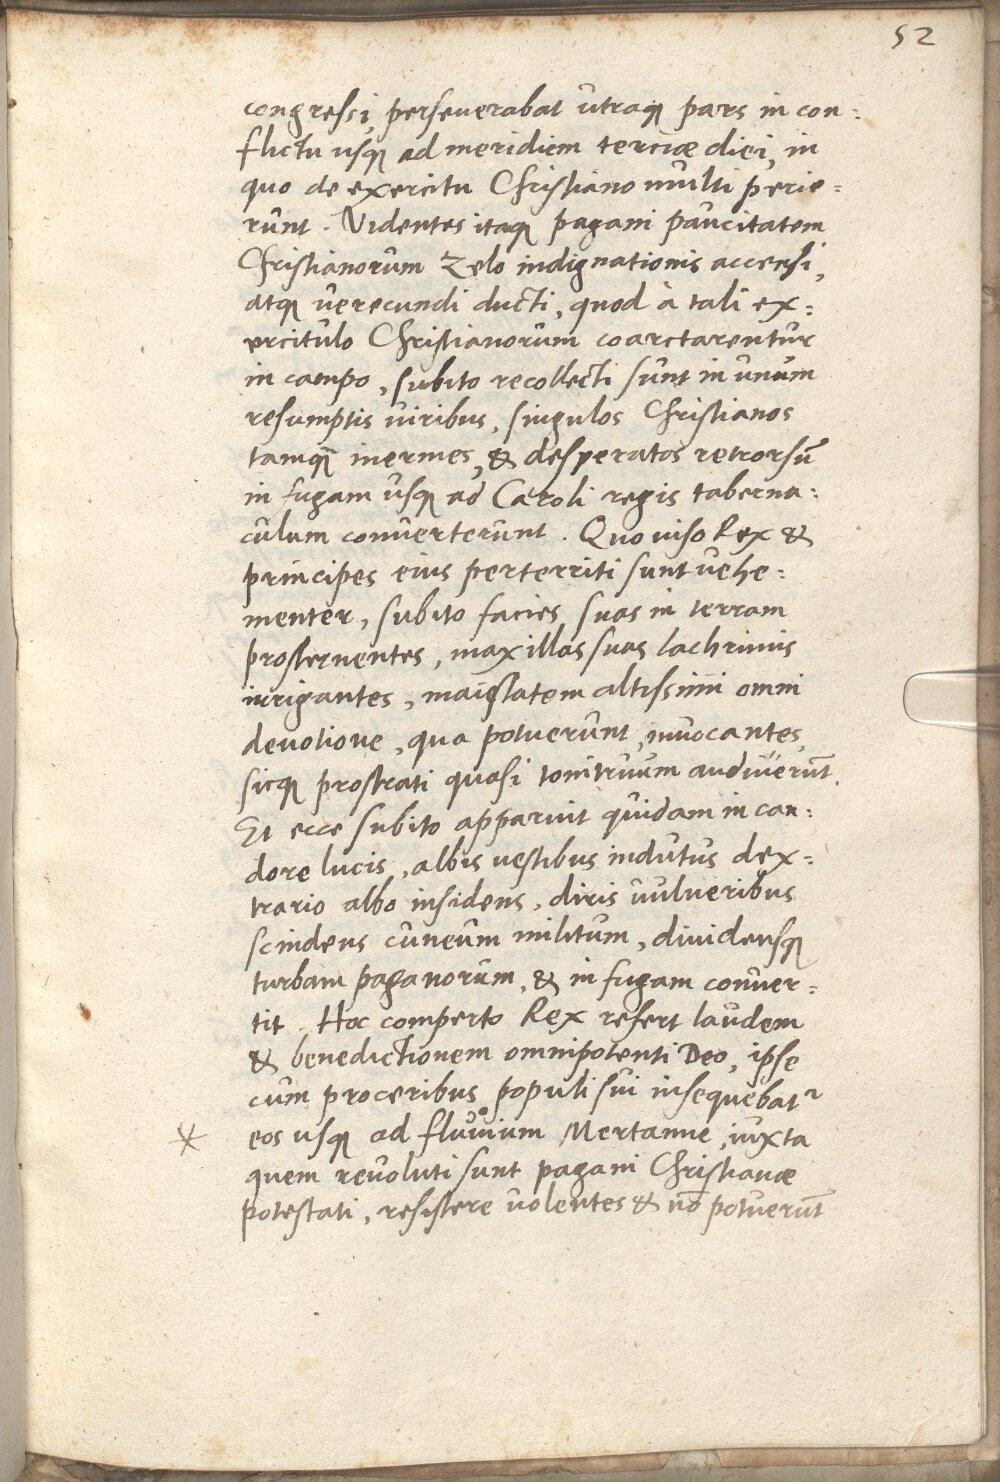 52
congressi, perseverabat vtraqꝫ pars in con=
flictu usqꝫ ad meridiem terciæ diei, in
quo de exercitu Christiano multi perie=
runt. Videntes itaqꝫ pagani paucitatem
Christianorum zelo indignationis accensi,
atqꝫ verecundi ducti, quod à tali ex=
ercitulo Christianorum coarctarentur
in campo, subito recollecti sunt in unum
resumptis viribus, singulos Christianos
tamqꝫ inermes, & desperatos retrorsū
in fugam usqꝫ ad Caroli regis taberna=
culum converterunt. Quo viso Rex &
principes eius perterriti sunt vehe=
menter, subito facies suas in terram
prosternentes, maxillas suas lachrimis
irrigantes, maiestatem altissimi omni
devotione, qua potuerunt, invocantes,
sicqꝫ prostrati quasi tonitruum audiverūt.
Et ecce subito apparuit quidam in can=
dore lucis, albis vestibus indutus dex=
trario albo insidens, diris vulneribus
scindens cuneum militum, dividensqꝫ
turbam paganorum, & in fugam conver=
tit. Hoc comperto Rex refert laudem
& benedictionem omnipotenti Deo, ipse
cum proceribus populi sui insequebat᷑
* eos usqꝫ ad fluvium Mertanne, iuxta
quem revoluti sunt pagani Christianæ
potestati, resistere volentes & nō potuerūt